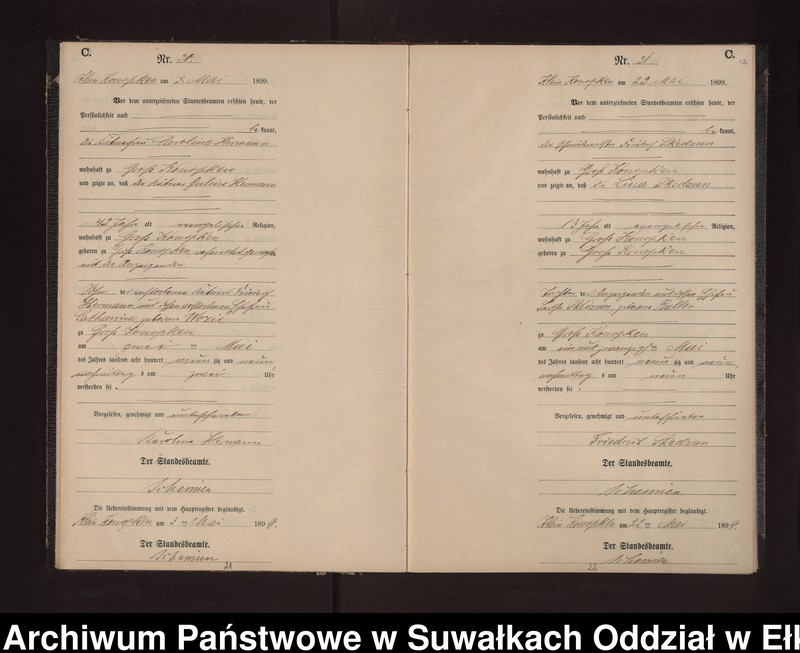 C.
Nr.
Klein Konopken am 3. Mai 1899.
Vor dem unterzeichneten Standesbeamten erschien heute, der
Persönlichkeit nach
be kannt,
die Karoline Hermann
wohnhaft zu Groß Konopken
und zeigte an, daß der Julius Hermann
42 Jahre alt evangelischer Religion,
wohnhaft zu Groß Konopken
geboren zu Groß Konopken
und der Anzeigenden
Sohn des verstorbenen
Hermann und
Catharina geborene
zu Groß Konopken
am zwei ten Mai
des Jahres tausend acht hundert neun zig und neun,
nachmittag s um zwei Uhr
verstorben sei.
Vorgelesen, genehmigt und unterschrieben
Karoline Hermann
Der Standesbeamte.
Schemien
Die Uebereinstimmung mit dem Hauptregister beglaubigt.
Klein Konopken am 3. ten Mai 1899.
Der Standesbeamte.
Schemien
21
C.
Nr. 21
Klein Konopken am 22 Mai 1899.
Vor dem unterzeichneten Standesbeamten erschien heute, der
Persönlichkeit nach
be kannt,
der Friedrich Skedzun
wohnhaft zu Groß Konopken
und zeigte an, daß die Lina Skedzun
13 Jahre alt evangelischer Religion,
wohnhaft zu Groß Konopken
geboren zu Groß Konopken
Tochter des Anzeigenden und dessen Ehefrau
Skedzun, geborene
zu Groß Konopken
am ein und zwanzig ten Mai
des Jahres tausend acht hundert neun zig und neun,
nachmittag s um neun Uhr
verstorben sei.
Vorgelesen, genehmigt und unterschrieben
Friedrich Skedzun
Der Standesbeamte.
Schemien
Die Uebereinstimmung mit dem Hauptregister beglaubigt.
Klein Konopken am 22 ten Mai 1899.
Der Standesbeamte.
Schemien
22
Archiwum Państwowe w Suwałkach Oddział w Ełk